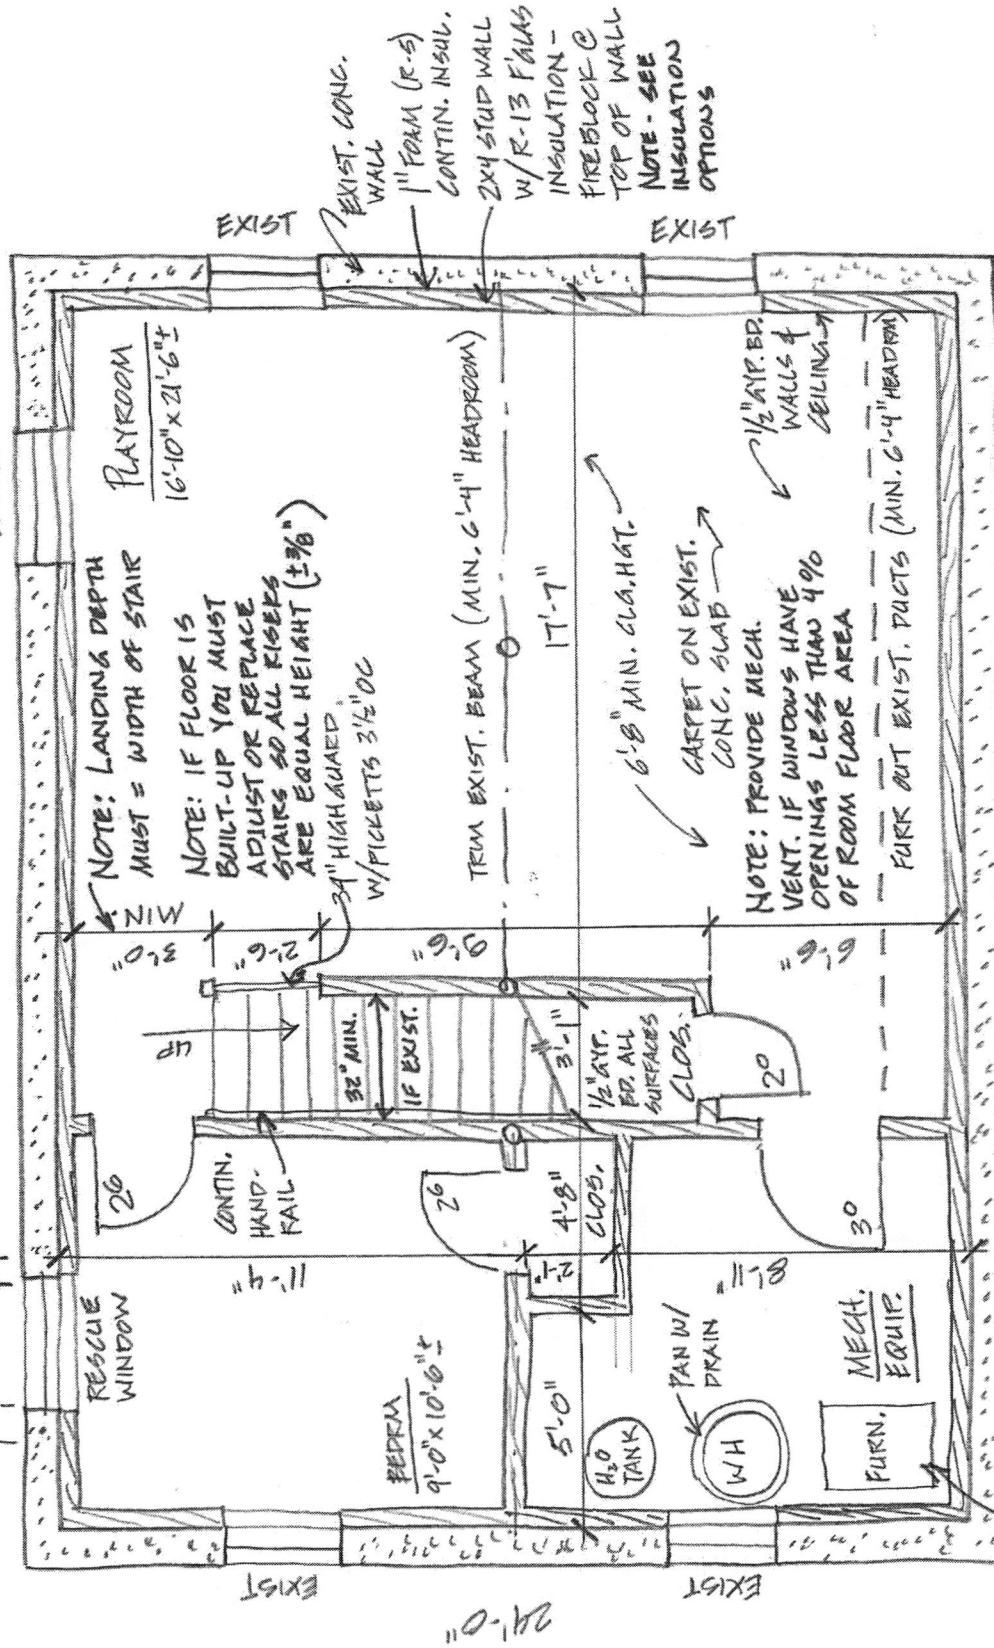 EXIST. CONC.
WALL
1" FOAM (R-5)
CONTIN. INSUL.
2x4 STUD WALL
W/ R-13 F'GLAS
INSULATION -
FIREBLOCK @
TOP OF WALL
NOTE - SEE
INSULATION
OPTIONS
EXIST
EXIST
PLAYROOM
16'-10" x 21'-6" ±
NOTE: LANDING DEPTH
MUST = WIDTH OF STAIR
NOTE: IF FLOOR IS
BUILT-UP YOU MUST
ADJUST OR REPLACE
STAIRS SO ALL RISERS
ARE EQUAL HEIGHT (± 3/8")
34" HIGH GUARD
W/PICKETTS 3 1/2" OC
TRIM EXIST. BEAM (MIN. 6'-4" HEADROOM)
17'-7"
6'-8" MIN. CLG. HGT.
CARPET ON EXIST.
CONC. SLAB
1/2" GYP. BD.
WALLS &
CEILING
NOTE: PROVIDE MECH.
VENT. IF WINDOWS HAVE
OPENINGS LESS THAN 4%
OF ROOM FLOOR AREA
FURR OUT EXIST. DUCTS (MIN. 6'-4" HEADRM)
MIN.
3'-0"
2'-6"
9'-6"
6'-6"
UP
32" MIN.
IF EXIST.
3'-1"
1/2" GYP.
BD. ALL
SURFACES
CLOS.
2⁰
2⁶
CONTIN.
HAND-
RAIL
2⁶
4'-8"
CLOS.
3⁰
11'-4"
2'-1"
8'-11"
RESCUE
WINDOW
BEDRM
9'-0" x 10'-6" ±
5'-0"
H₂O
TANK
PAN W/
DRAIN
WH
MECH.
EQUIP.
FURN.
EXIST
EXIST
24'-0"